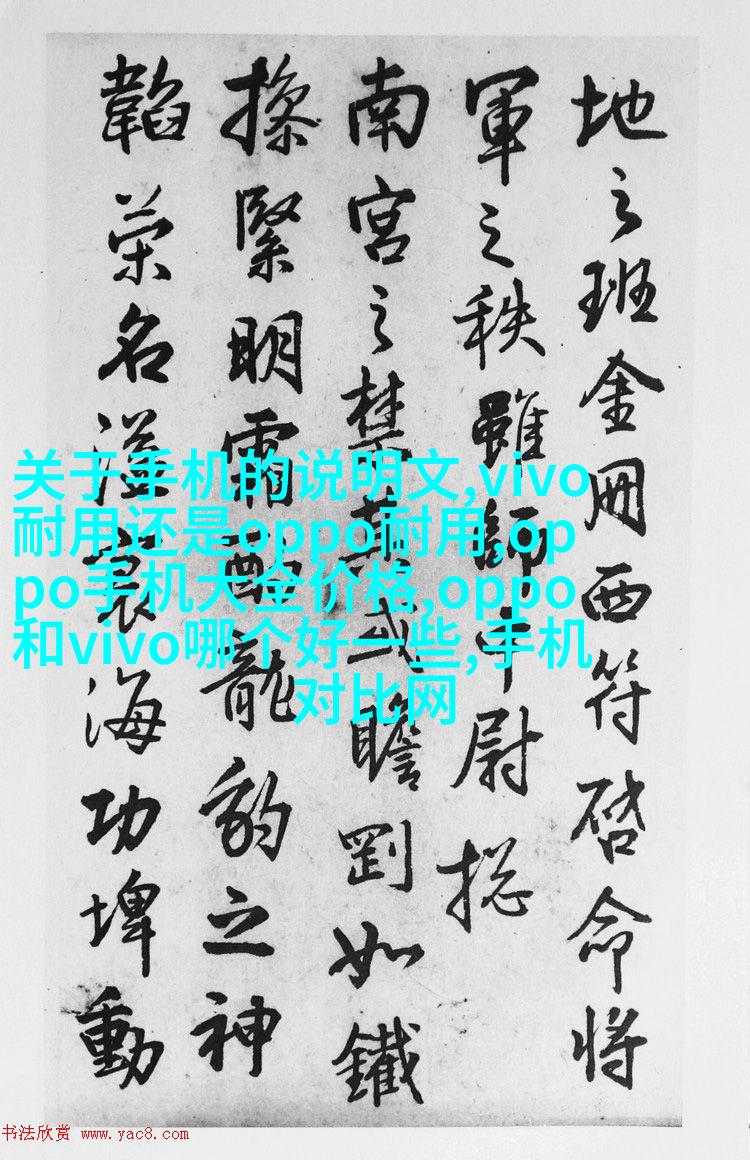 地之班金冊西符啓命将
軍之秩雖師中尉揔
南宮之禁或瞻剛如鐵
操緊明霜龍豹之神
韜榮名溢寰海功埤動
关于手机的说明文,vivo
耐用还是oppo耐用,op
po手机大全价格,oppo
和vivo哪个好一些,手机
对比网
书法欣赏 www.yac8.com